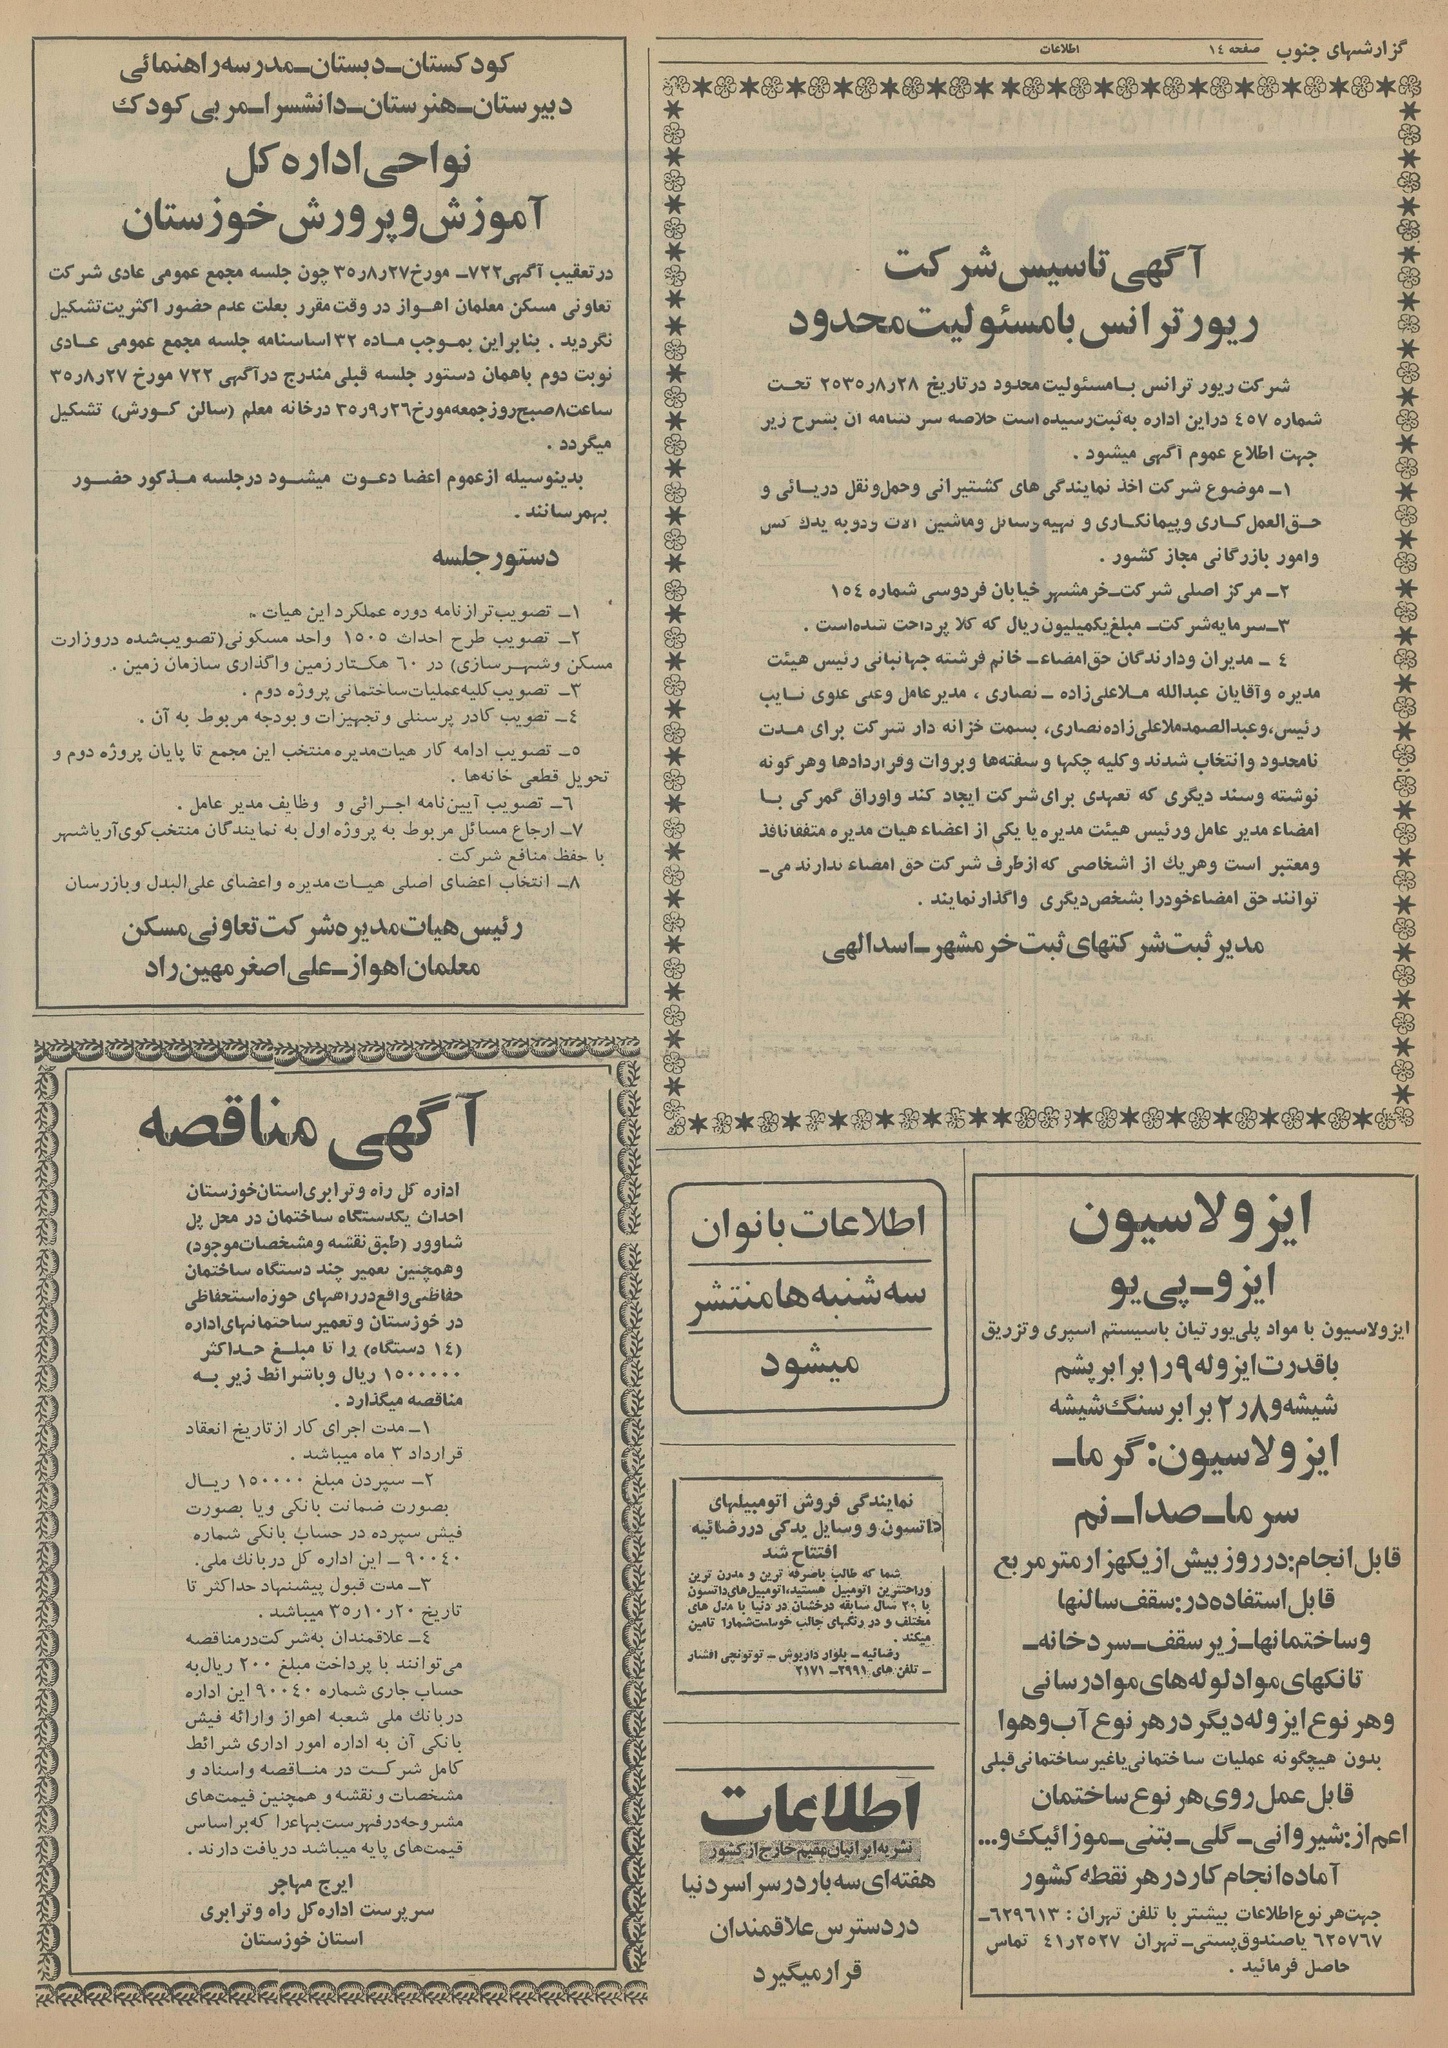 گزارشهای جنوب صفحه ۱٤ اطلاعات
آگهی تاسیس شرکت
ریور ترانس با مسئولیت محدود
شرکت ریور ترانس بـا مسئولیت محدود در تاریخ ۲۸ر۸ر۲۵۳۵ تحت
شماره ٤٥٧ در این اداره به ثبت رسیده است خلاصه سر نامه آن بشرح زیر
جهت اطلاع عموم آگهی میشود .
۱ــ موضوع شرکت اخذ نمایندگی های کشتیرانی و حمل و نقل دریائی و
حـق العمل کـاری و پیمانکـاری و تهیه وسائل و ماشین آلات و دوبه یدک کش
و امور بازرگانی مجاز کشور .
۲ــ مرکز اصلی شرکت ــ خرمشهر خیابان فردوسی شماره ۱٥٤
۳ــ سرمایه شرکت ــ مبلغ یکمیلیون ریال که کلا پرداخت شده است .
٤ ــ مدیران و دارندگان حق امضاء ــ خانم فرشته جهانبانی رئیس هیئت
مدیره و آقایان عبدالله مـلاعلی زاده ــ نصاری ، مدیر عامل و علی علوی نـایب
رئیس، و عبدالصمد ملاعلی زاده نصاری، بسمت خزانه دار شرکت برای مـدت
نامحدود و انتخاب شدند و کلیه چکها و سفته ها و بروات و قراردادها و هر گونه
نوشته و سند دیگری که تعهدی برای شرکت ایجاد کند و اوراق گمرکی بـا
امضاء مدیر عامل و رئیس هیئت مدیره یا یکی از اعضاء هیات مدیره متفقا نافذ
و معتبر است و هریك از اشخاصی که از طرف شرکت حق امضاء ندارند می ــ
توانند حق امضاء خود را بشخص دیگری واگذار نمایند .
مدیر ثبت شرکتهای ثبت خرمشهر ــ اسدالهی
کودکستان ــ دبستان ــ مدرسه راهنمائی
دبیرستان ــ هنرستان ــ دانشسرا ــ مربی کودک
نواحی اداره کل
آموزش و پرورش خوزستان
در تعقیب آگهی ۷۲۲ ــ مورخ ۲۷ر۸ر۳۵ چون جلسه مجمع عمومی عادی شرکت
تعاونی مسکن معلمان اهـواز در وقت مقرر بعلت عدم حضور اکثریت تشکیل
نگردید . بنابراین بمـوجب مـاده ۳۲ اساسنامه جلسه مجمع عمومی عـادی
نوبت دوم باهمان دستور جلسه قبلی مندرج در آگهی ۷۲۲ مورخ ۲۷ر۸ر۳۵
ساعت ۸ صبح روز جمعه مورخ ۲۶ر۹ر۳۵ در خانه معلم (سالن کـورش) تشکیل
میگردد .
بدینوسیله از عموم اعضا دعـوت میشـود در جلسه مـذکور حضـور
بهمرسانند .
دستور جلسه
۱ــ تصویب ترازنامه دوره عملکرد این هیات .
۲ــ تصویب طرح احداث ۱٥۰٥ واحد مسکونی (تصویب شده در وزارت
مسکن و شهـرسازی) در ٦۰ هکـتار زمین واگذاری سازمان زمین .
۳ــ تصویب کلیه عملیات ساختمانی پروژه دوم .
٤ــ تصویب کادر پرسنلی و تجهیزات و بودجه مربوط به آن .
٥ــ تصویب ادامه کار هیات مدیره منتخب این مجمع تا پایان پروژه دوم و
تحویل قطعی خانه ها .
٦ــ تصویب آیین نامه اجـرائی و وظایف مدیر عامل .
۷ــ ارجاع مسائل مربوط به پروژه اول به نمایندگان منتخب کوی آریاشهر
با حفظ منافع شرکت .
۸ــ انتخاب اعضای اصلی هیـات مدیره و اعضای علی البدل و بازرسان
رئیس هیات مدیره شرکت تعاونی مسکن
معلمان اهواز ــ علی اصغر مهین راد
آگهی مناقصه
اداره کل راه و ترابری استان خوزستان
احداث یکدستگاه ساختمان در محل پل
شاوور (طبق نقشه و مشخصات موجود)
و همچنین تعمیر چند دستگاه ساختمان
حفاظتی واقع در راههای حوزه استحفاظی
در خوزستان و تعمیر ساختمانهای اداره
(۱٤ دستگاه) را تا مبلـغ حـداکثر
۱٥۰۰۰۰۰ ریال و باشرائط زیر بـه
مناقصه میگذارد .
۱ــ مدت اجرای کار از تاریخ انعقاد
قرارداد ۳ ماه میباشد .
۲ــ سپردن مبلغ ۱٥۰۰۰۰ ریـال
بصورت ضمانت بانکی و یا بصورت
فیش سپرده در حساب بانکی شماره
۹۰۰٤۰ ــ این اداره کل در بانك ملی.
۳ــ مدت قبول پیشنهاد حداکثر تا
تاریخ ۲۰ر۱۰ر۳۵ میباشد .
٤ــ علاقمندان به شرکت در مناقصه
می توانند با پرداخت مبلغ ۲۰۰ ریال به
حساب جاری شماره ۹۰۰٤۰ این اداره
در بانك ملی شعبه اهواز و ارائه فیش
بانکی آن به اداره امور اداری شرائط
کامل شرکت در منـاقصه و اسناد و
مشخصات و نقشه و همچنین قیمت های
مشروحه در فهرست بهاء را که بر اساس
قیمت های پایه میباشد دریافت دارند .
ایرج مهاجر
سرپرست اداره کل راه و ترابری
استان خوزستان
اطلاعات بانوان
سه شنبه ها منتشر
میشود
نمایندگی فروش اتومبیلهای
داتسون و وسایل یدکی در رضائیه
افتتاح شد
شما که طالب باصرفه ترین و مدرن ترین
و راحتترین اتومبیل هستید، اتومبیل های داتسون
با ۲۰ سال سابقه درخشان در دنیا با مدل های
مختلف و در رنگهای جالب خواست شما را تامین
میکند .
رضائیه ــ بلوار داریوش ــ توتونچی افشار
ــ تلفن های ۲۹۹۱ ــ ۲۱۷۱
اطلاعات
نشریه ایرانیان مقیم خارج از کشور
هفته ای سه بار در سراسر دنیا
در دسترس علاقمندان
قرار میگیرد
ایزولاسیون
ایزو ــ پی یو
ایزولاسیون با مواد پلی یورتیان با سیستم اسپری و تزریق
با قدرت ایزوله ۹ر۱ برابر پشم
شیشه و ۸ر۲ برابر سنگ شیشه
ایزولاسیون: گرما ــ
سرما ــ صدا ــ نم
قابل انجام: در روز بیش از یکهزار متر مربع
قابل استفاده در: سقف سالنها
و ساختمانها ــ زیر سقف ــ سردخانه ــ
تانکهای مواد لوله های مواد رسانی
و هر نوع ایزوله دیگر در هر نوع آب و هوا
بدون هیچگونه عملیات ساختمانی یا غیر ساختمانی قبلی
قابل عمل روی هر نوع ساختمان
اعم از: شیروانی ــ گلی ــ بتنی ــ موزائیک و...
آماده انجام کار در هر نقطه کشور
جهت هر نوع اطلاعات بیشتر با تلفن تهران : ٦۲۹٦۱۳ ــ
٦۲٥۷٦۷ یا صندوق پستی ــ تهران ۲٥۲۷ر٤۱ تماس
حاصل فرمائید .